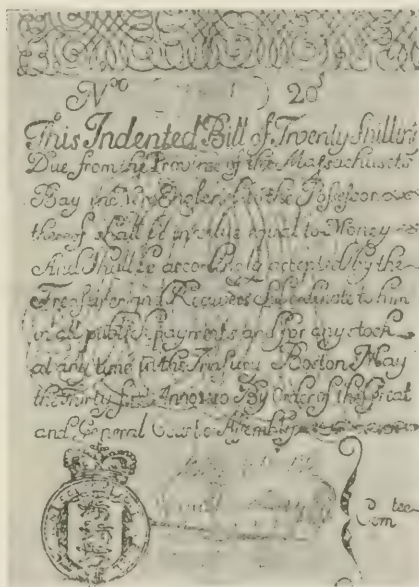 No 20s
This Indented Bill of Twenty Shillings
Due from the Province of the Massachusets
Bay in New England to the Possessor
thereof shall be in value equal to Money
And shall be accordingly accepted by the
Treasurer and Receivers Subordinate to him
in all publick payments and for any stock
at any time in the Treasury Boston May
the thirty first Anno By Order of the Great
and General Court or Assembly
Com tee